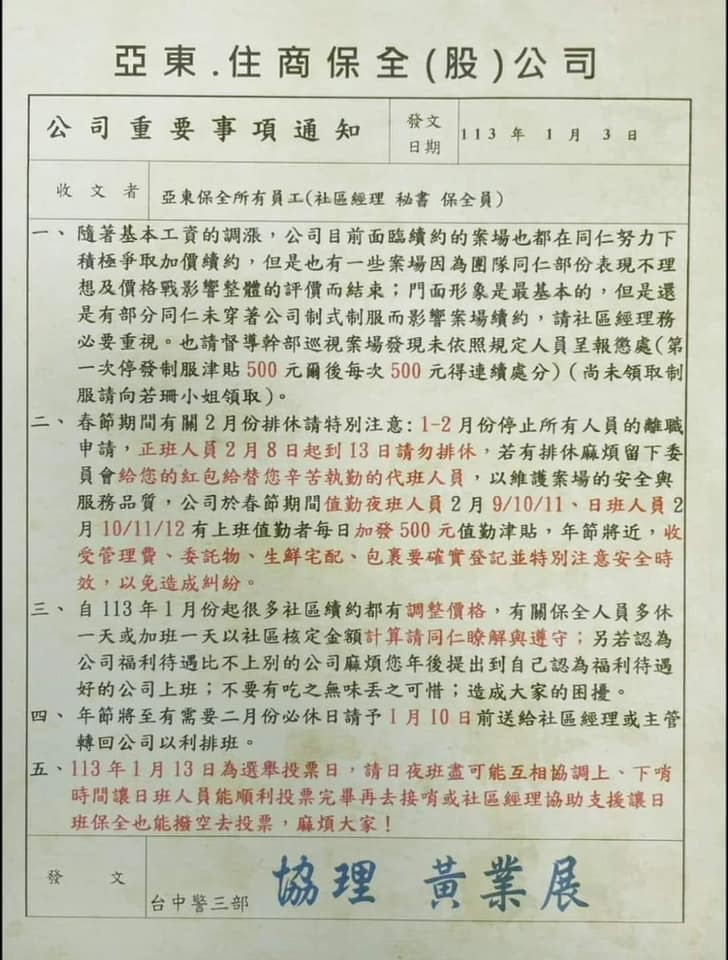 亞東.住商保全(股)公司
公司重要事項通知
發文
日期
113 年 1 月 3 日
收文者
亞東保全所有員工(社區經理 秘書 保全員)
一、隨著基本工資的調漲，公司目前面臨續約的案場也都在同仁努力下
積極爭取加價續約，但是也有一些案場因為團隊同仁部份表現不理
想及價格戰影響整體的評價而結束；門面形象是最基本的，但是還
是有部分同仁未穿著公司制式制服而影響案場續約，請社區經理務
必要重視。也請督導幹部巡視案場發現未依照規定人員呈報懲處(第
一次停發制服津貼 500 元爾後每次 500 元得連續處分)(尚未領取制
服請向若珊小姐領取)。
二、春節期間有關 2 月份排休請特別注意: 1-2 月份停止所有人員的離職
申請，正班人員 2 月 8 日起到 13 日請勿排休，若有排休麻煩留下委
員會給您的紅包給替您辛苦執勤的代班人員，以維護案場的安全與
服務品質，公司於春節期間值勤夜班人員 2 月 9/10/11、日班人員 2
月 10/11/12 有上班值勤者每日加發 500 元值勤津貼，年節將近，收
受管理費、委託物、生鮮宅配、包裹要確實登記並特別注意安全時
效，以免造成糾紛。
三、自 113 年 1 月份起很多社區續約都有調整價格，有關保全人員多休
一天或加班一天以社區核定金額計算請同仁瞭解與遵守；另若認為
公司福利待遇比不上別的公司麻煩您年後提出到自己認為福利待遇
好的公司上班；不要有吃之無味丟之可惜；造成大家的困擾。
四、年節將至有需要二月份必休日請予 1 月 10 日前送給社區經理或主管
轉回公司以利排班。
五、113 年 1 月 13 日為選舉投票日，請日夜班盡可能互相協調上、下哨
時間讓日班人員能順利投票完畢再去接哨或社區經理協助支援讓日
班保全也能撥空去投票，麻煩大家！
發文
台中警三部
協理 黃業展